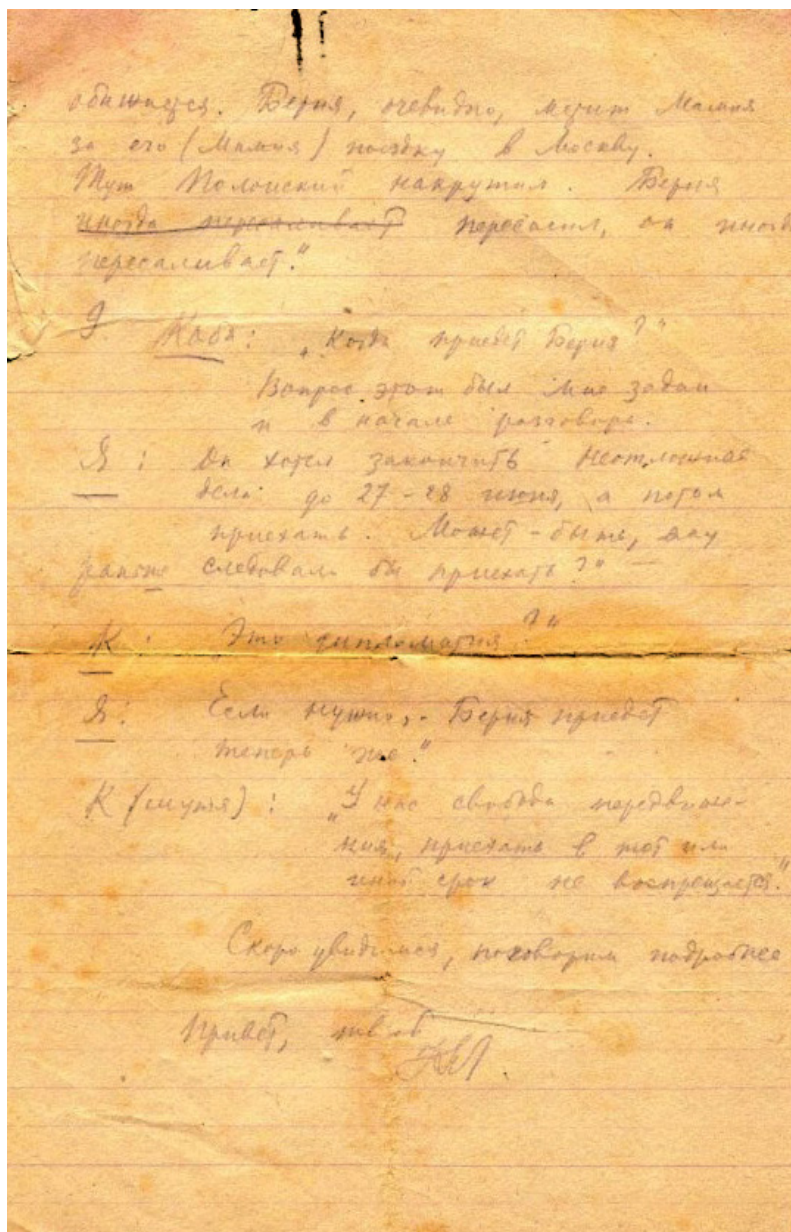 обижается. Берия, очевидно, метит Мамия
за его (Мамия) поездку в Москву.
Тут Полонский накрутил. Берия
иногда пересаливает пересолил, он иногда
пересаливает."
9. Коба: „Когда приедет Берия?"
Вопрос этот был мне задан
и в начале разговора.
Я: Он хотел закончить неотложные
дела до 27-28 июня, а потом
приехать. Может-быть, ему
раньше следовало бы приехать?"
К: „Это дипломатия?"
Я: Если нужно, - Берия приедет
теперь же."
К (шутя): „У нас свобода передвиже-
ния, приехать в тот или
иной срок не воспрещается."
Скоро увидимся, поговорим подробнее
Привет,